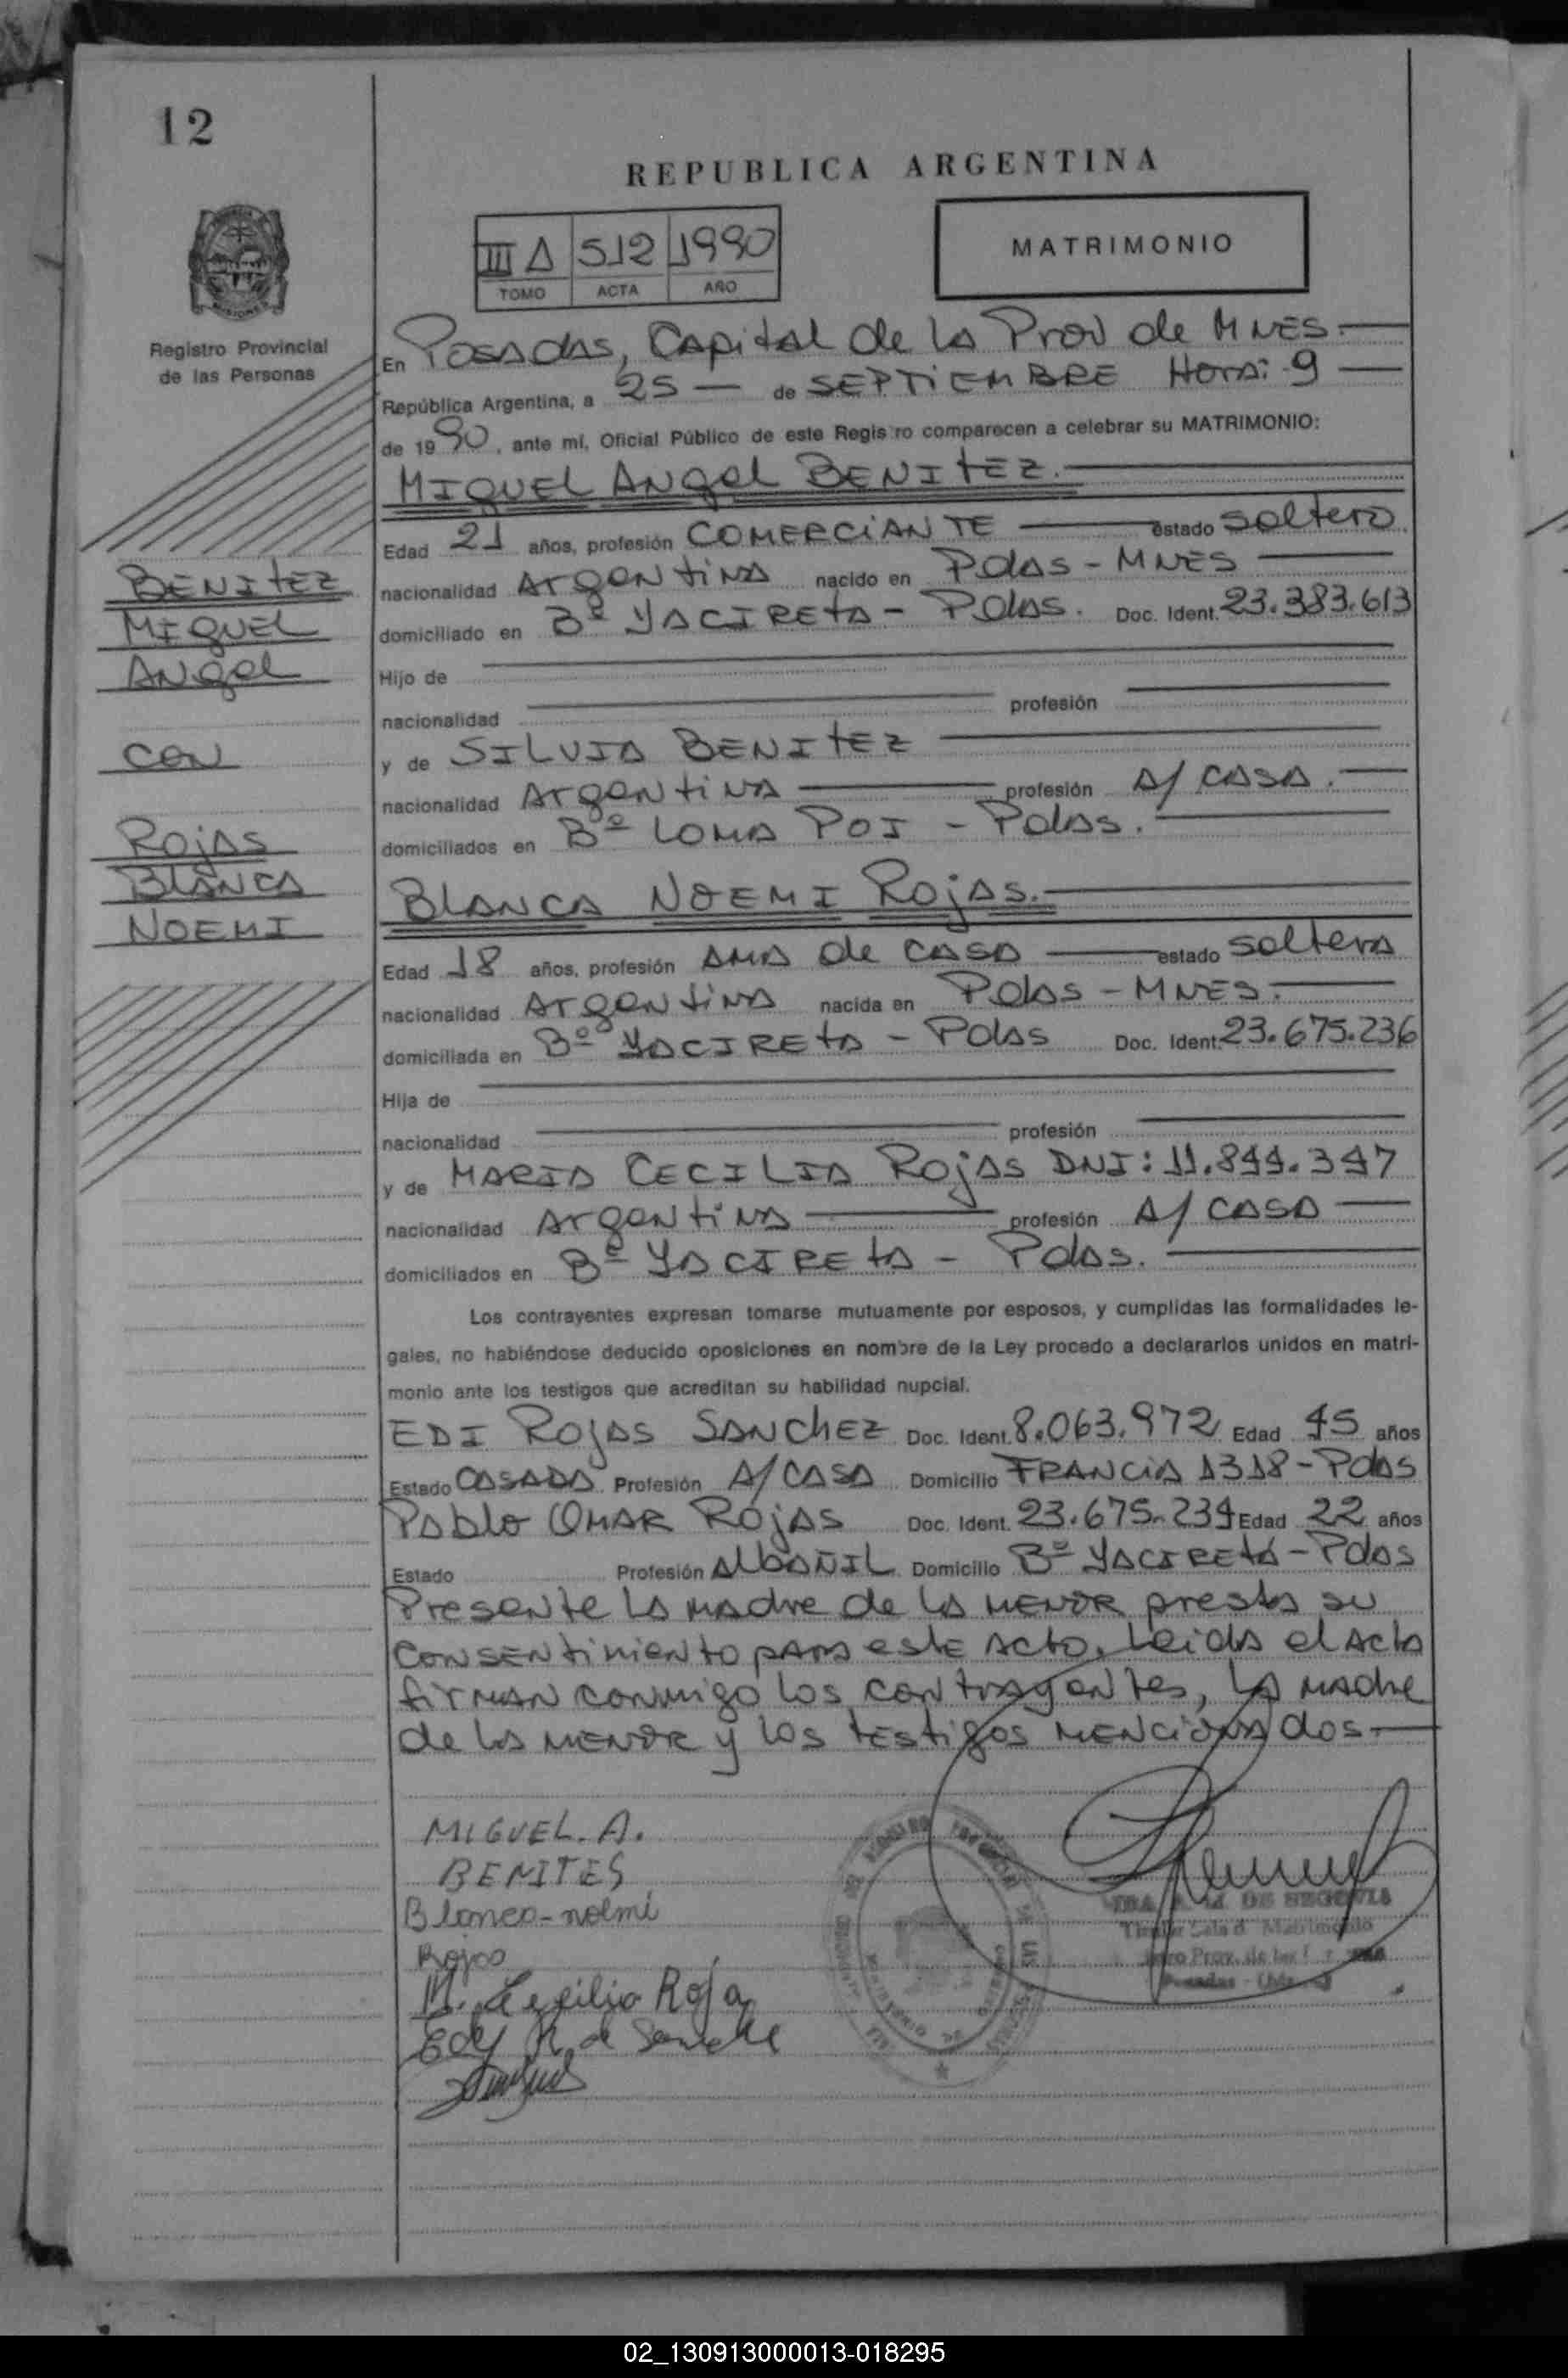 12
REPUBLICA ARGENTINA
III A 512 1990
TOMO ACTA AÑO
MATRIMONIO
Registro Provincial
de las Personas
En Posadas, Capital de la Prov de MNES.
República Argentina, a 25 — de SEPTIEMBRE Hora: 9
de 1990, ante mí, Oficial Público de este Registro comparecen a celebrar su MATRIMONIO:
MIGUEL ANGEL BENITEZ.
Edad 21 años, profesión COMERCIANTE estado soltero
nacionalidad Argentina nacido en Pdas - MNES
domiciliado en Bº YACIRETA - Pdas. Doc. Ident. 23.383.613
Hijo de
nacionalidad profesión
y de SILVIA BENITEZ
nacionalidad Argentina profesión A/ CASA.
domiciliados en Bº LOMA POI - Pdas.
BLANCA NOEMI ROJAS.
Edad 18 años, profesión AMA de CASA estado soltera
nacionalidad Argentina nacida en Pdas - MNES.
domiciliada en Bº YACIRETA - Pdas Doc. Ident. 23.675.236
Hija de
nacionalidad profesión
y de MARIA CECILIA ROJAS DNI: 11.844.347
nacionalidad Argentina profesión A/ CASA
domiciliados en Bº YACIRETA - Pdas.
BENITEZ
MIGUEL
ANGEL
CON
ROJAS
BLANCA
NOEMI
Los contrayentes expresan tomarse mutuamente por esposos, y cumplidas las formalidades le-
gales, no habiéndose deducido oposiciones en nombre de la Ley procedo a declararlos unidos en matri-
monio ante los testigos que acreditan su habilidad nupcial.
EDI ROJAS SANCHEZ Doc. Ident. 8.063.972 Edad 45 años
Estado CASADA Profesión A/ CASA Domicilio FRANCIA 1318 - Pdas
Pablo OMAR ROJAS Doc. Ident. 23.675.234 Edad 22 años
Estado Profesión AlbAÑIL Domicilio Bº YACIRETÁ - Pdas
Presente la madre de la MENOR presta su
CONSENTimiento para este Acto. Leida el Acta
firman conmigo los contrayentes, la madre
de la MENOR y los testigos MENCIONAdos.
MIGUEL. A.
BENITES
Blanca-nolmi
Rojas
M. Cecilia Roja
Edy R. de Sanche
DE SEGOVIA
Titular Sala d Matrimonio
Posadas
02_130913000013-018295